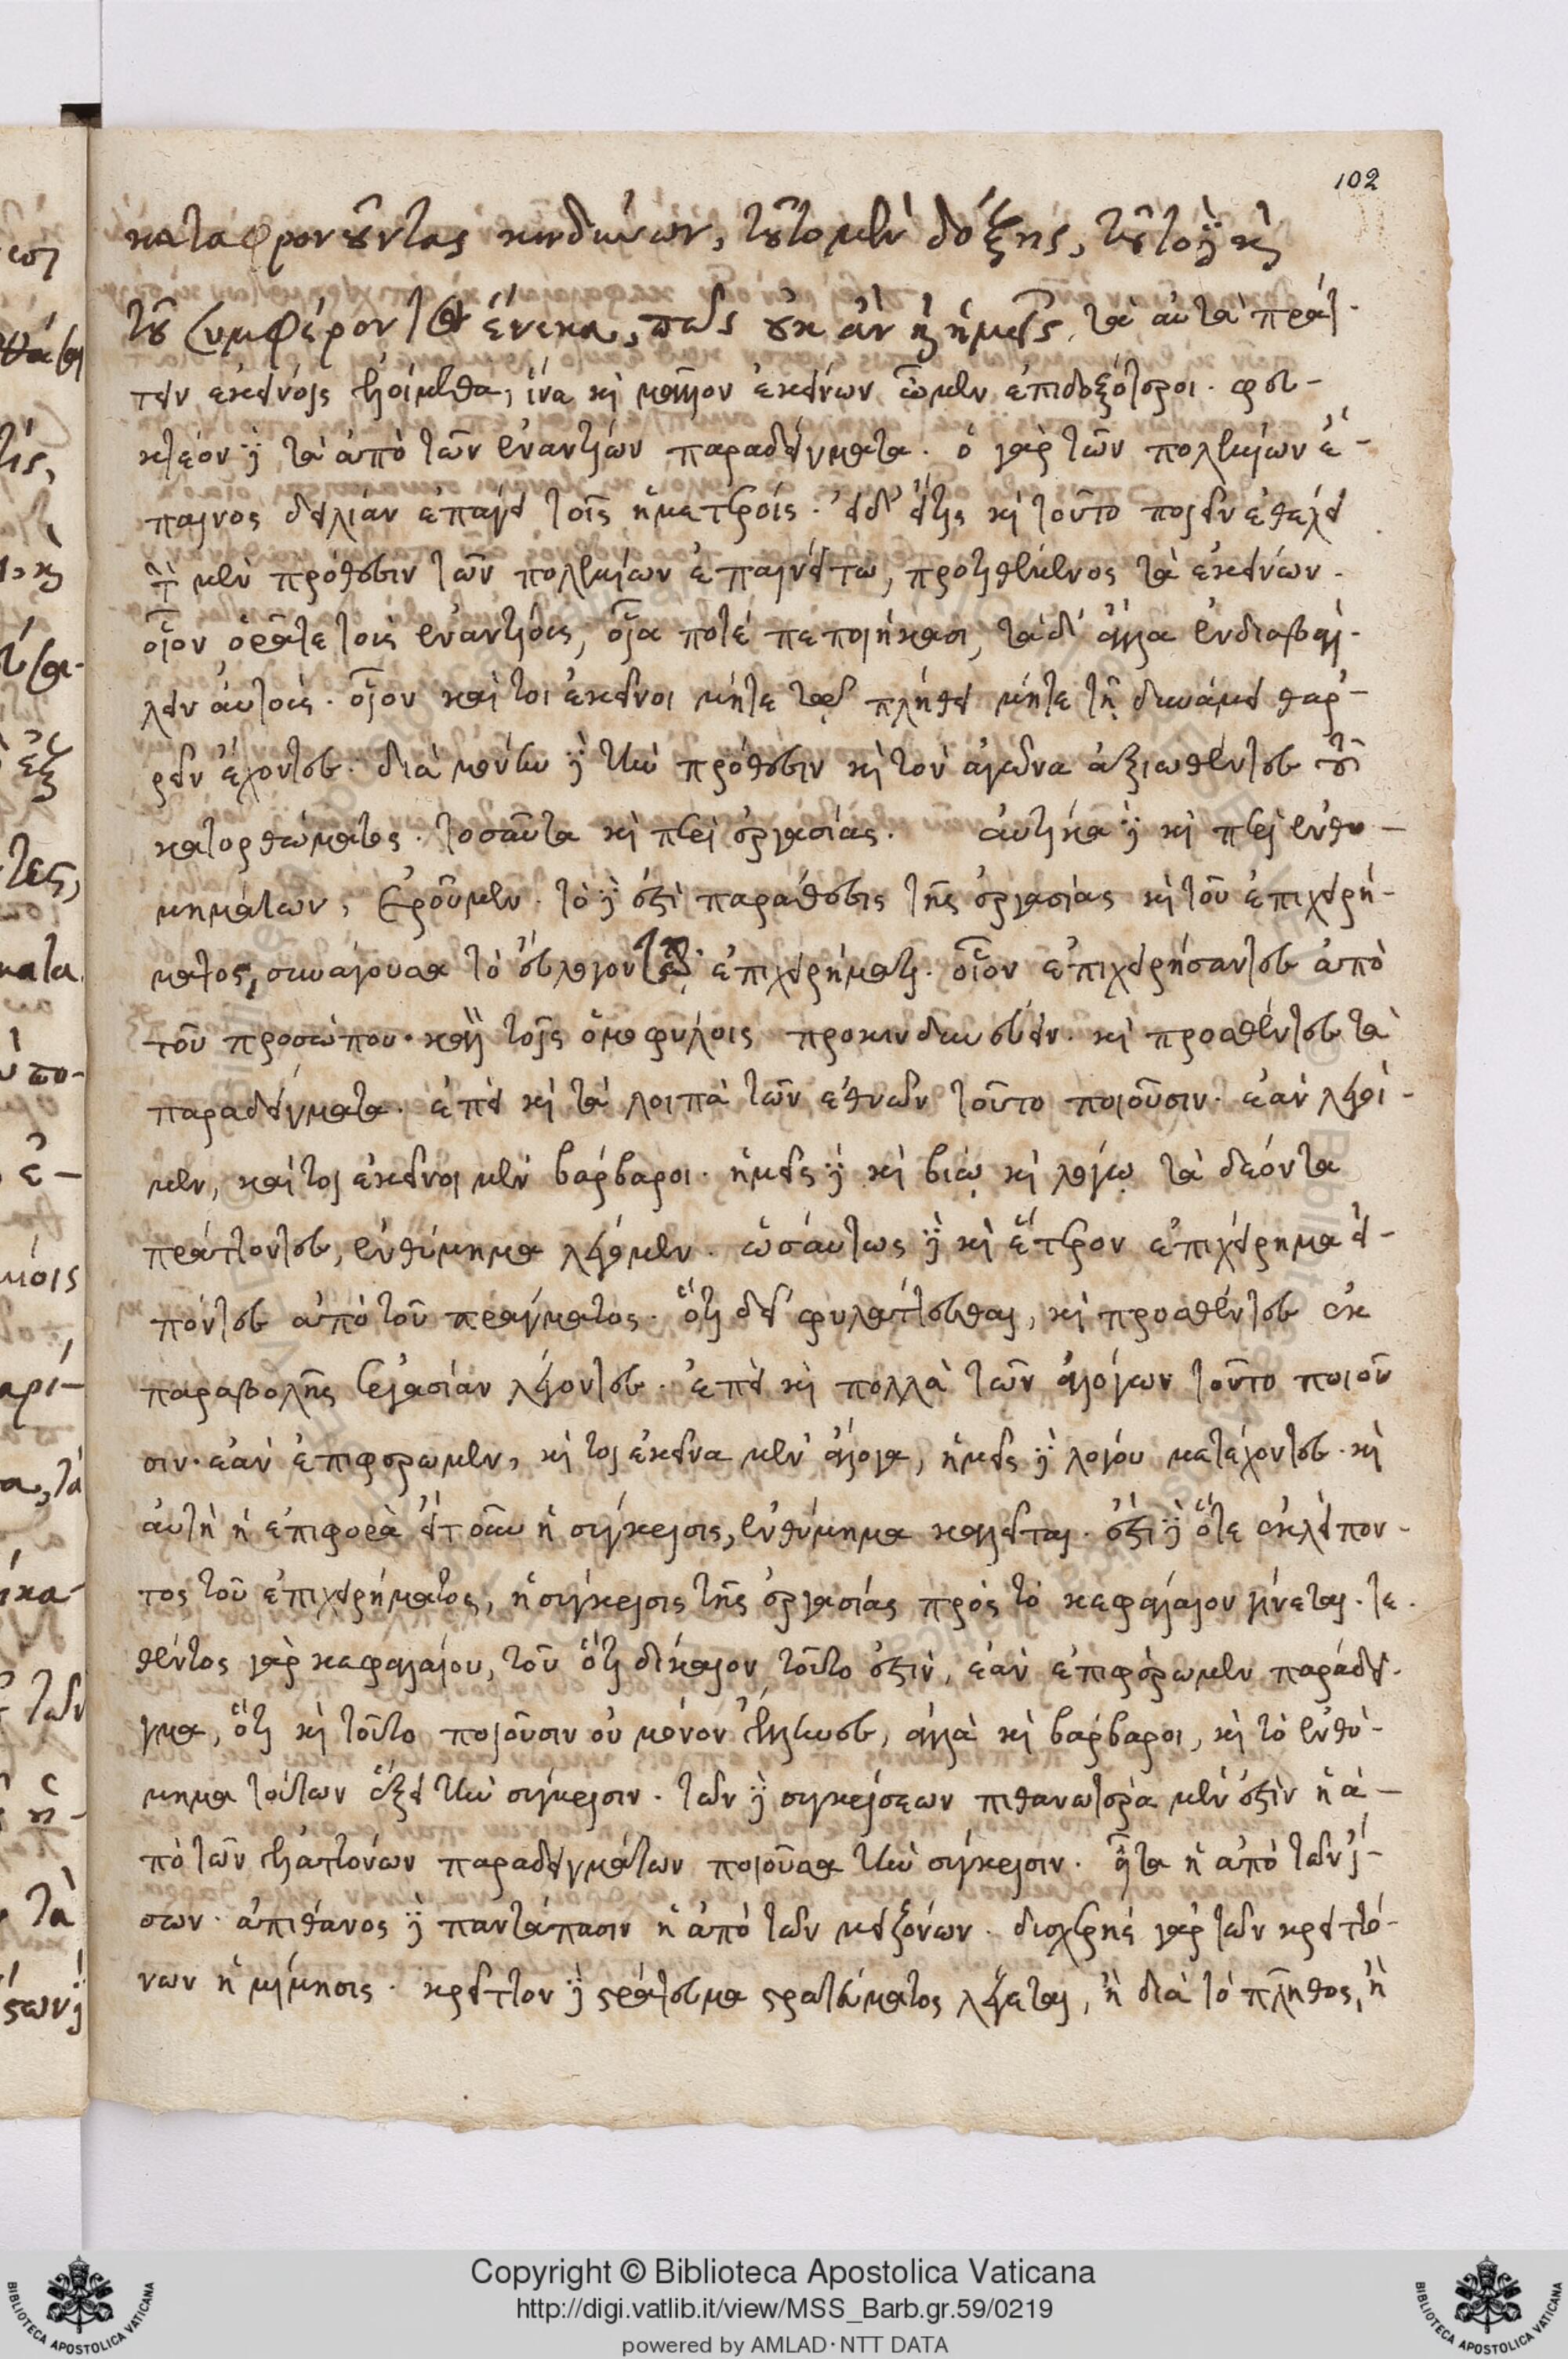 102
καταφρονοῦντας κινδύνων, τοῦτο μὲν δόξης, τοῦτο δὲ καὶ
τοῦ συμφέροντος ἕνεκα, πῶς οὐκ ἂν καὶ ἡμεῖς τὰ αὐτὰ πράτ-
τειν ἐκείνοις ἑλοίμεθα, ἵνα καὶ μᾶλλον ἐκείνων ὦμεν ἐπιδοξότεροι. φευ-
κτέον δὲ τὰ ἀπὸ τῶν ἐναντίων παραδείγματα. ὁ γὰρ τῶν πολεμίων ἔ-
παινος δειλίαν ἐπάγει τοῖς ἡμετέροις. εἰ δ' ἔτις καὶ τοῦτο ποιεῖν ἐθέλει
τὴν μὲν πρόθεσιν τῶν πολεμίων ἐπαινείτω, προτιθέμενος τὰ ἐκείνων.
οἷον ὁρᾶτε τοὺς ἐναντίους, οἷα ποτέ πεποιήκασι, τὰ δ' ἄλλα ἐνδιαβάλ-
λειν αὐτούς. οἷον καίτοι ἐκεῖνοι μήτε τῷ πλήθει μήτε τῇ δυνάμει θαρ-
ρεῖν ἔχοντες. διὰ μόνην δὲ τὴν πρόθεσιν καὶ τὸν ἀγῶνα ἀξιωθέντες τοῦ
κατορθώματος. τοσαῦτα καὶ περὶ ἐργασίας. αὐτίκα δὲ καὶ περὶ ἐνθυ-
μημάτων, ἐροῦμεν. τὸ δὲ ἐστὶ παράθεσις τῆς ἐργασίας καὶ τοῦ ἐπιχειρή-
ματος, συνάγουσα τὸ εὔλογον τῷ ἐπιχειρήματι. οἷον ἐπιχειρήσαντες ἀπὸ
τοῦ προσώπου. καλὸν τοῖς ὁμοφύλοις προκινδυνεύειν. καὶ προσθέντες τὰ
παραδείγματα. ἐπεὶ καὶ τὰ λοιπὰ τῶν ἐθνῶν τοῦτο ποιοῦσιν. ἐὰν λέγοι-
μεν, καίτοι ἐκεῖνοι μὲν βάρβαροι. ἡμεῖς δὲ καὶ βίῳ καὶ λόγῳ τὰ δέοντα
πράττοντες, ἐνθύμημα λέγομεν. ὡσαύτως δὲ καὶ ἕτερον ἐπιχείρημα εἰ-
πόντες ἀπὸ τοῦ πράγματος. ὅτι δεῖ φυλάττεσθαι, καὶ προσθέντες ἐκ
παραβολῆς ἐργασίαν λέγοντες. ἐπεὶ καὶ πολλὰ τῶν ἀλόγων τοῦτο ποιοῦ
σιν. ἐὰν ἐπιφέρωμεν, καὶ τοι ἐκεῖνα μὲν ἄλογα, ἡμεῖς δὲ λόγου μετέχοντες. καὶ
αὐτὴ ἡ ἐπιφορὰ εἴτουν ἡ σύγκρισις, ἐνθύμημα καλεῖται. ἔστι δὲ ὅτε ἐκλείπον-
τος τοῦ ἐπιχειρήματος, ἡ σύγκρισις τῆς ἐργασίας πρὸς τὸ κεφάλαιον γίνεται. τε-
θέντος γὰρ κεφαλαίου, τοῦ ὅτι δίκαιον τοῦτο ἐστὶν, ἐὰν ἐπιφέρωμεν παράδει-
γμα, ὅτι καὶ τοῦτο ποιοῦσιν οὐ μόνον ἕλληνες, ἀλλὰ καὶ βάρβαροι, καὶ τὸ ἐνθύ-
μημα τούτων ἕξει τὴν σύγκρισιν. τῶν δὲ συγκρίσεων πιθανωτέρα μὲν ἐστὶν ἡ ἀ-
πὸ τῶν ἐλαττόνων παραδειγμάτων ποιοῦσα τὴν σύγκρισιν. εἶτα ἡ ἀπὸ τῶν ἴ-
σων. ἀπίθανος δὲ παντάπασιν ἡ ἀπὸ τῶν μειζόνων. δυσχερής γὰρ τῶν κρειττό-
νων ἡ μίμησις. κρεῖττον δὲ στράτευμα στρατεύματος λέγεται, ἢ διὰ τὸ πλῆθος, ἢ
Copyright © Biblioteca Apostolica Vaticana
http://digi.vatlib.it/view/MSS_Barb.gr.59/0219
powered by AMLAD·NTT DATA